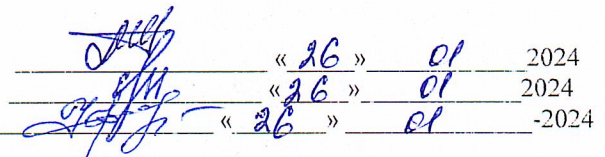 « 26 » 01 2024
« 26 » 01 2024
« 26 » 01 -2024